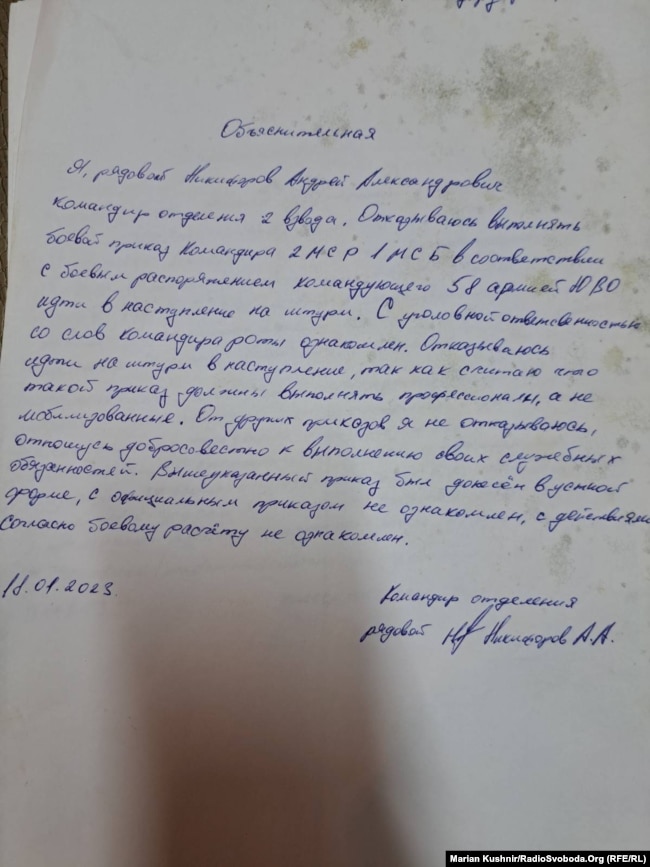 Объяснительная
Я, рядовой Никифоров Андрей Александрович
командир отделения 2 взвода. Отказываюсь выполнять
боевой приказ командира 2 МСР 1 МСБ в соответствии
с боевым распоряжением командующего 58 армией ЮВО
идти в наступление на штурм. С уголовной ответственностью
со слов командира роты ознакомлен. Отказываюсь
идти на штурм в наступление, так как считаю что
такой приказ должны выполнять профессионалы, а не
мобилизованные. От других приказов я не отказываюсь,
отношусь добросовестно к выполнению своих служебных
обязанностей. Вышеуказанный приказ был донесён в устной
форме, с официальным приказом не ознакомлен, с действиями
согласно боевому расчёту не ознакомлен.
18.01.2023.
Командир отделения
рядовой Никифоров А.А.
Marian Kushnir/RadioSvoboda.Org (RFE/RL)